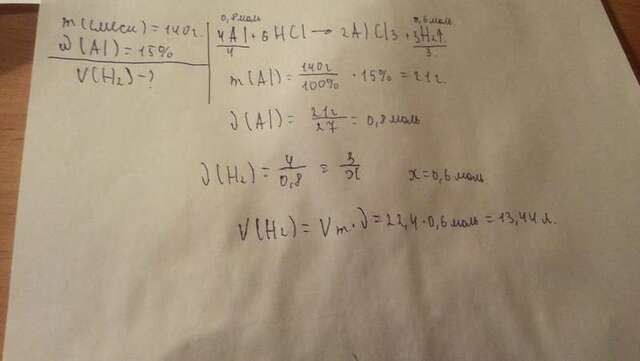 m(смеси)=140г.
ω(Al)=15%
V(H₂)-?
0,8моль 0,6моль
4Al+6HCl→2AlCl₃+3H₂↑
4 3
m(Al)=140г/100%·15%=21г
ν(Al)=21г/27=0,8моль
ν(H₂)=4/0,8=3/x x=0,6моль
V(H₂)=Vm·ν=22,4·0,6моль=13,44л.